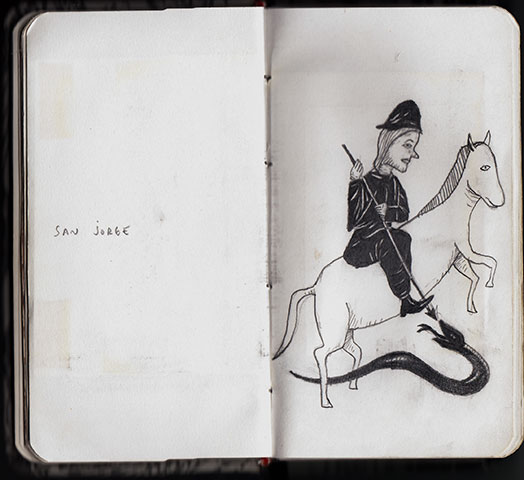 SAN JORGE